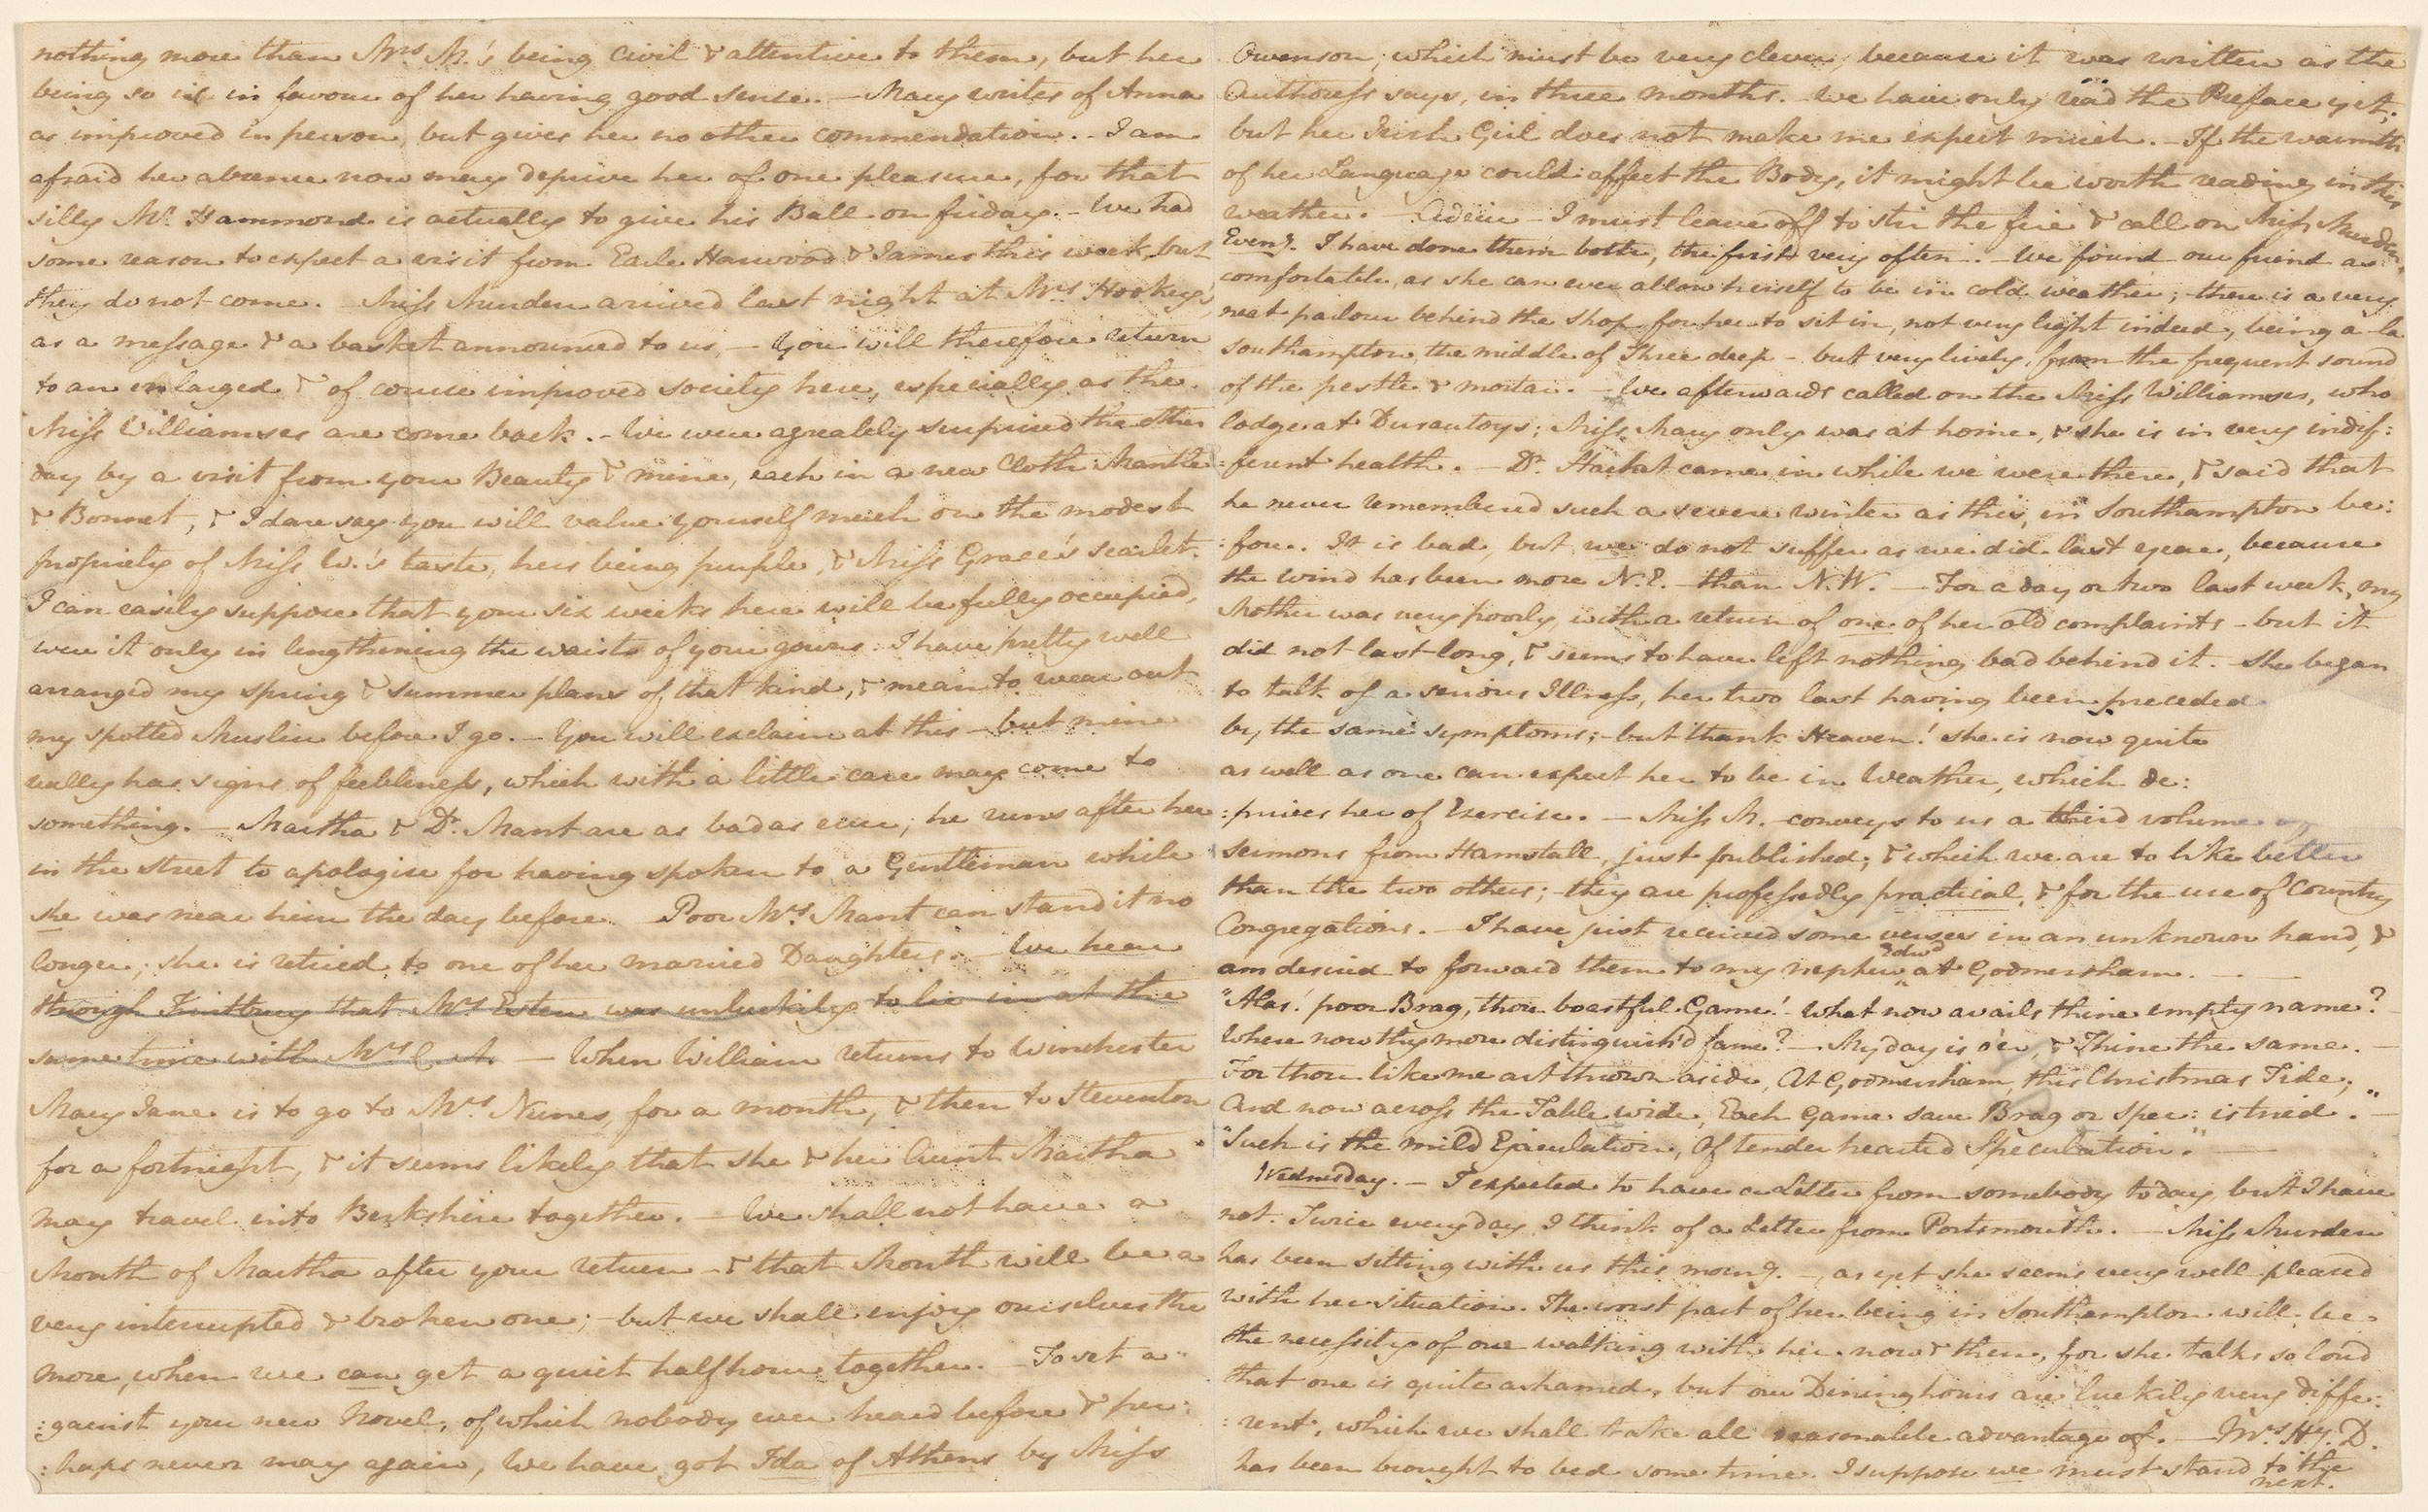 nothing more than Mrs M.'s being civil & attentive to them, but her
being so is in favour of her having good sense. — Mary writes of Anna
as improved in person, but gives her no other commendation. — I am
afraid her absence now may deprive her of one pleasure, for that
silly Mr. Hammond is actually to give his Ball — on friday. — We had
some reason to expect a visit from Earle Harwood & James this week, but
they do not come. — Miss Murden arrived last night at Mrs Hookey's,
as a message & a basket announced to us. — You will therefore return
to an enlarged & of course improved society here, especially as the
Miss Williamses are come back. — We were agreably surprised the other
day by a visit from your Beauty & mine, each in a new Cloth Mantle
& Bonnet, & I dare say you will value yourself much on the modest
propriety of Miss W.'s taste, hers being purple, & Miss Grace's scarlet.
I can easily suppose that your six weeks here will be fully occupied,
were it only in lengthening the waists of your gowns. I have pretty well
arranged my spring & summer plans of that kind, & mean to wear out
my spotted Muslin before I go. — You will exclaim at this — but mine
really has signs of feebleness, which with a little care may come to
something. — Martha & Dr. Mant are as bad as ever; he runs after her
in the street to apologise for having spoken to a Gentleman while
she was near him the day before. — Poor Mrs Mant can stand it no
longer; she is retired to one of her married Daughters. — We hear
through Kintbury that Mrs Esten was unluckily to lie in at the
same time with Mrs C. A. — When William returns to Winchester
Mary Jane is to go to Mrs Nunes, for a month, & then to Steventon
for a fortnight, & it seems likely that she & her Aunt Martha
may travel into Berkshire together. — We shall not have a
Month of Martha after your return — & that Month will be a
very interrupted & broken one; — but we shall enjoy ourselves the
more, when we can get a quiet half hour together. — To set a
:gainst your new Novel, of which nobody ever heard before & per:
:haps never may again, We have got Ida of Athens by Miss
Owenson; which must be very clever, because it was written as the
Authoress says, in three months. — We have only read the Preface yet;
but her Irish Girl does not make me expect much. — If the warmth
of her Language could affect the Body, it might be worth reading in this
weather. — Adeiu — I must leave off to stir the fire & call on Miss Murden.
Eveng. I have done them both, the first very often. — We found our friend as
comfortable, as she can ever allow herself to be in cold weather; — there is a very
neat parlour behind the Shop for her to sit in, not very light indeed, being a la
Southampton, the middle of Three deep — but very lively, from the frequent sound
of the pestle & mortar. — We afterwards called on the Miss Williamses, who
lodge at Durantoys; Miss Mary only was at home, & she is in very indif:
:ferent health. — Dr. Hacket came in while we were there, & said that
he never remembered such a severe winter as this, in Southampton be:
:fore. It is bad, but we do not suffer as we did last year, because
the wind has been more N.E. — than N.W. — For a day or two last week, my
Mother was very poorly, with a return of one of her old complaints — but it
did not last long, & seems to have left nothing bad behind it. — She began
to talk of a serious Illness, her two last having been preceded
by the same symptoms; — but thank Heaven! she is now quite
as well as one can expect her to be in Weather, which de:
:prives her of Exercise. — Miss M. conveys to us a third volume of
sermons from Hamstall, just published; & which we are to like better
than the two others; — they are professedly practical, & for the use of Country
Congregations. — I have just received some verses in an unknown hand, &
am desired to forward them to my nephew Edwd at Godmersham. —
"Alas! poor Brag, thou boastful Game! — What now avails thine empty name? —
Where now thy more distinguish'd fame? — My day is o'er, & Thine the same. —
For thou like me art thrown aside, At Godmersham, this Christmas Tide;
And now across the Table wide, Each Game save Brag or Spec: is tried." —
"Such is the mild Ejaculation, Of tender hearted Speculation." —
Wednesday. — I expected to have a Letter from somebody today, but I have
not. Twice every day, I think of a Letter from Portsmouth. — Miss Murden
has been sitting with us this morng. —, as yet she seems very well pleased
with her situation. The worst part of her being in Southampton will be
the necessity of our walking with her now & then, for she talks so loud
that one is quite ashamed, but our Dining hours are luckily very diffe:
:rent, which we shall take all reasonable advantage of. — Mrs Hy. D.
has been brought to bed some time. I suppose we must stand to the
next.